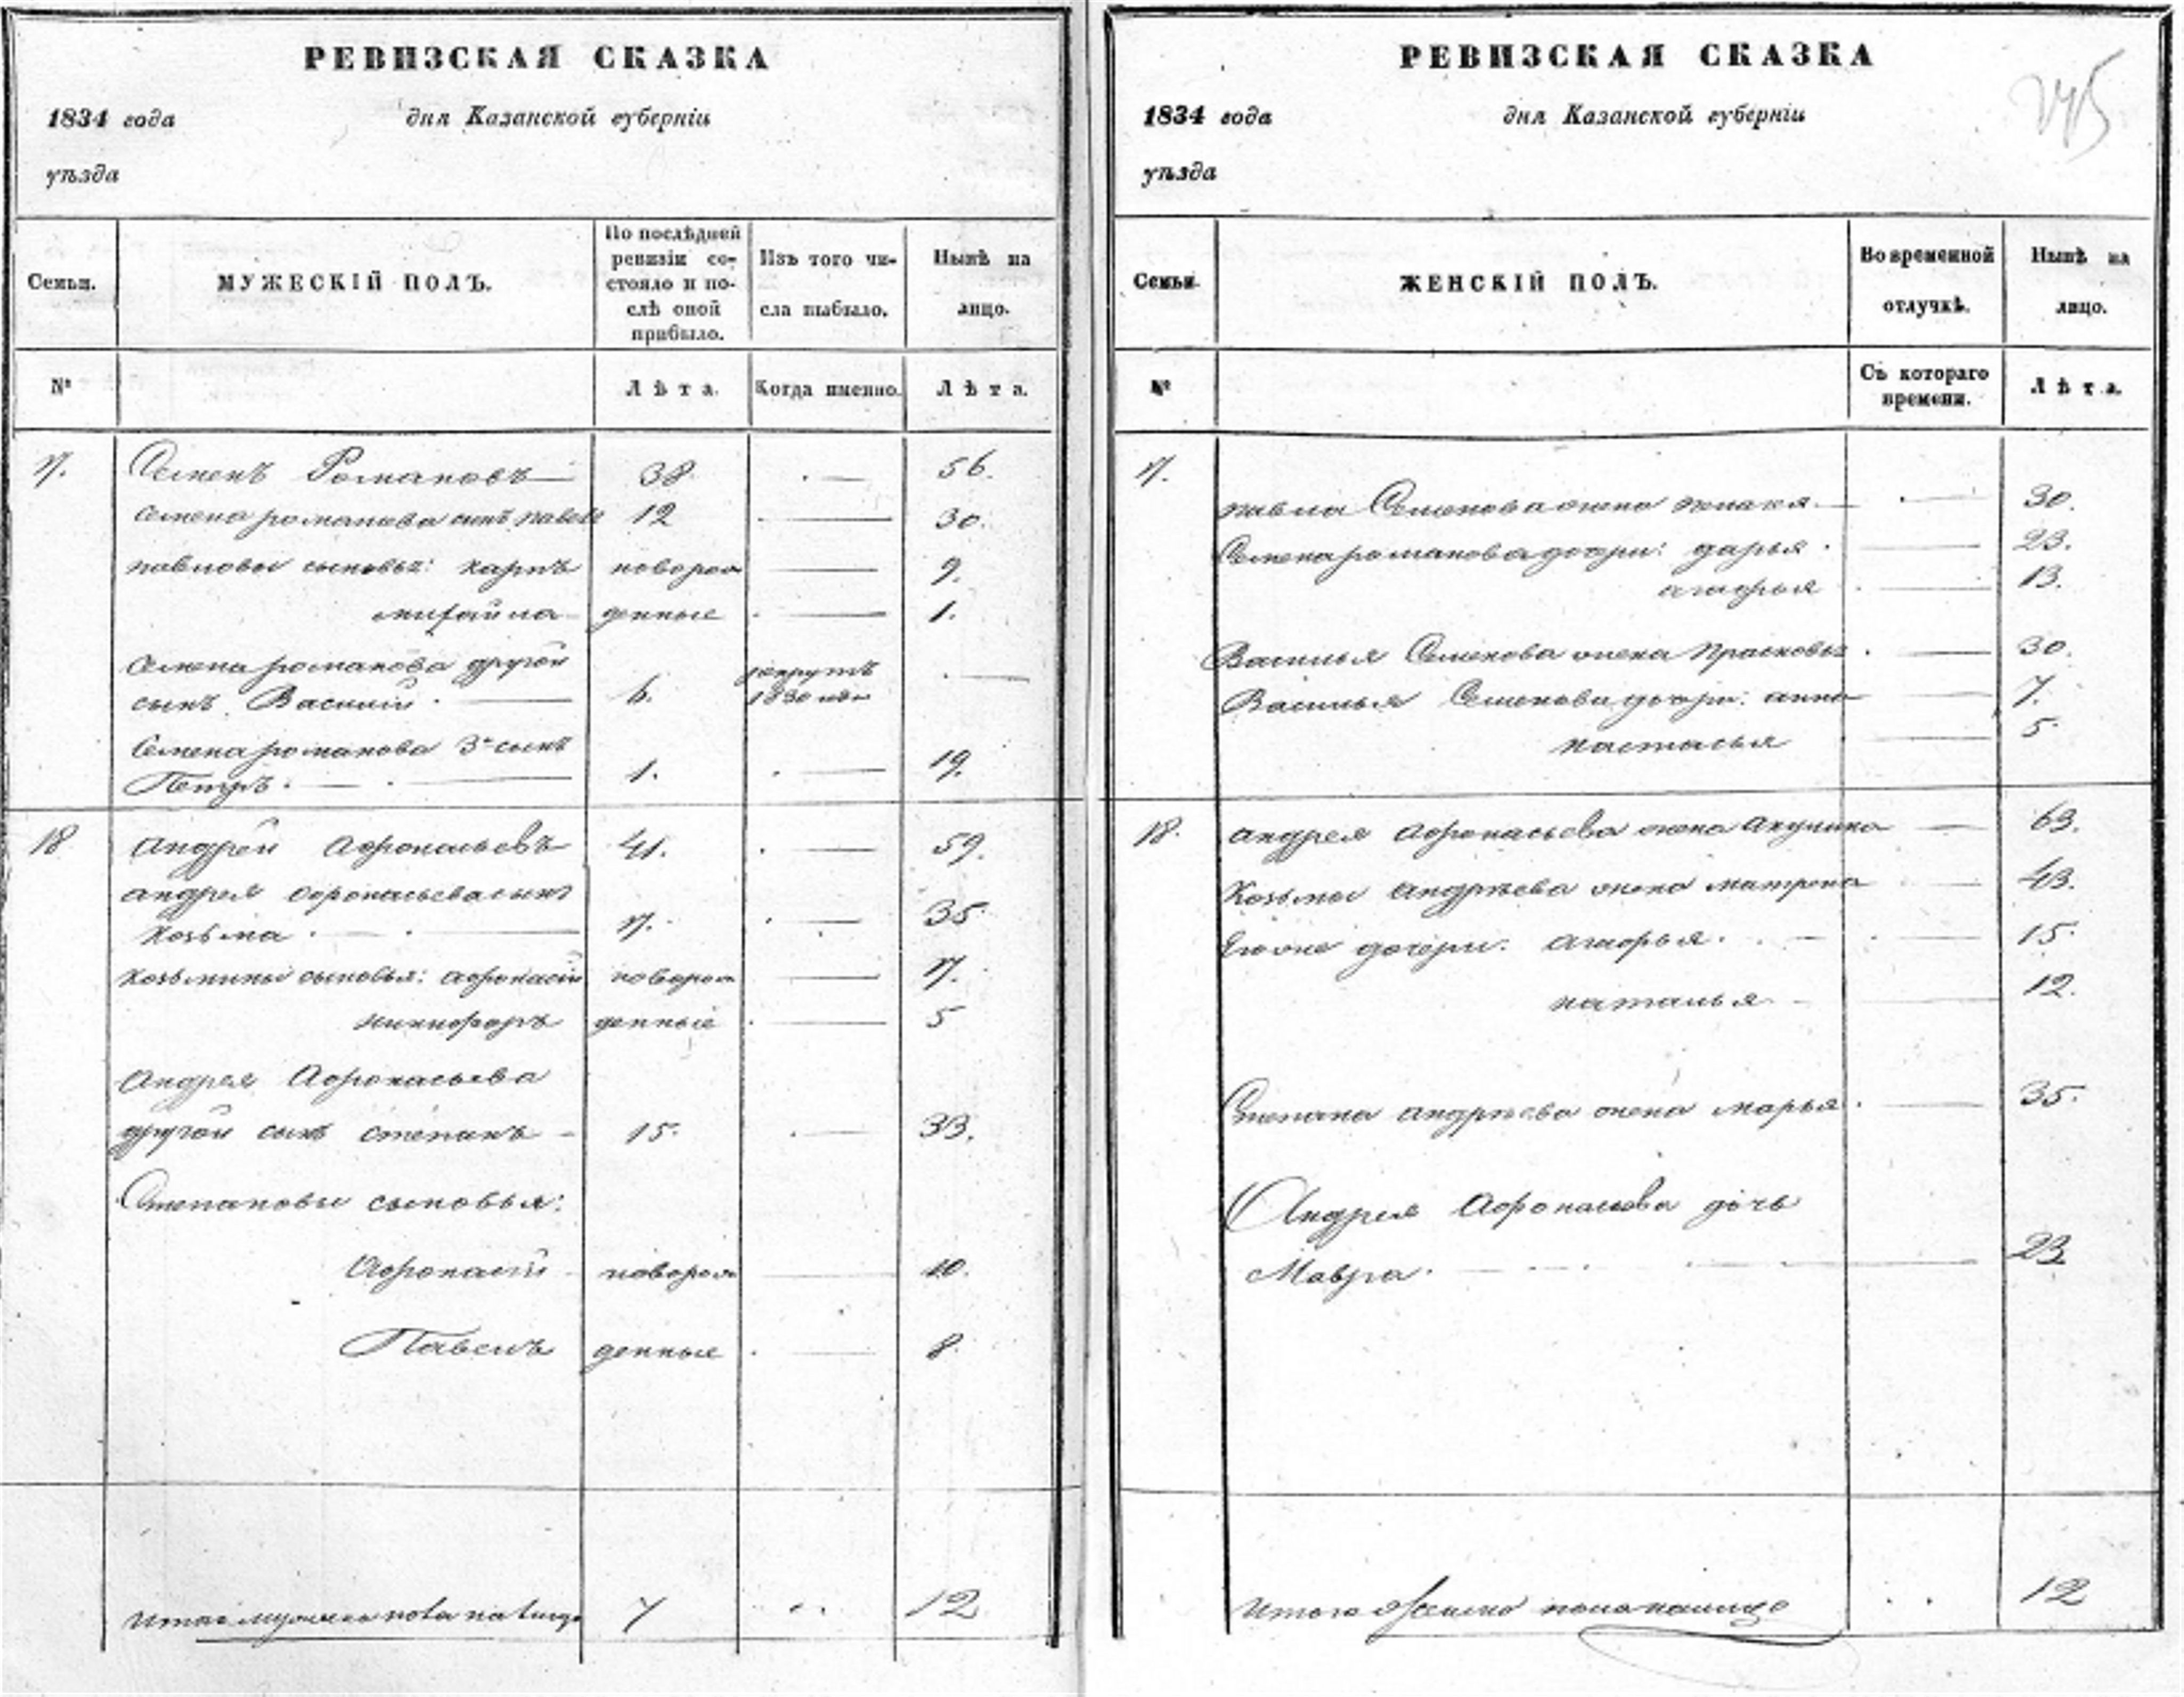 РЕВИЗСКАЯ СКАЗКА
1834 года дня Казанской губерніи
уѣзда
Семьи. МУЖЕСКІЙ ПОЛЪ. По послѣдней ревизіи состояло и послѣ оной прибыло. Изъ того числа выбыло. Нынѣ на лицо.
№ Лѣта. Когда именно. Лѣта.
17. Семенъ Романовъ 38 56.
Семена романова сынъ павелъ 12 30.
павловы сыновья: карпъ новорож 9.
михайла денные 1.
Семена романова другой
сынъ Василій 6. рекрутъ 1830
Семена романова 3й сынъ
Петръ. 1. 19.
18 Андрей Афонасьевъ 41. 59.
андрея афонасьева сынъ
Козьма 17. 35
козьмины сыновья: афонасій новорож 17.
никифоръ денные 5
Андрея Афонасьева
другой сынъ степанъ 15. 33.
Степановы сыновья:
Афонасій новорож 10.
Павелъ денные 8
Итого мужеска пола на лицо 7 12
РЕВИЗСКАЯ СКАЗКА
1834 года дня Казанской губерніи
уѣзда
Семьи. ЖЕНСКІЙ ПОЛЪ. Во временной отлучкѣ. Нынѣ на лицо.
№ Съ котораго времени. Лѣта.
17.
павла Семенова жена 30.
Семена романова дочери: дарья 23.
13.
Василья Семенова жена Прасковья 30.
Василья Семенова дочери: анна 7.
настасья 5
18. андрея Афонасьева жена Акулина 63.
Козьмы андрѣева жена матрена 43.
Ево же дочери: 15
наталья 12.
Степана андрѣева жена марья 35.
Андрея Афонасьева дочь
Мавра. 23.
Итого женска пола на лицо 12